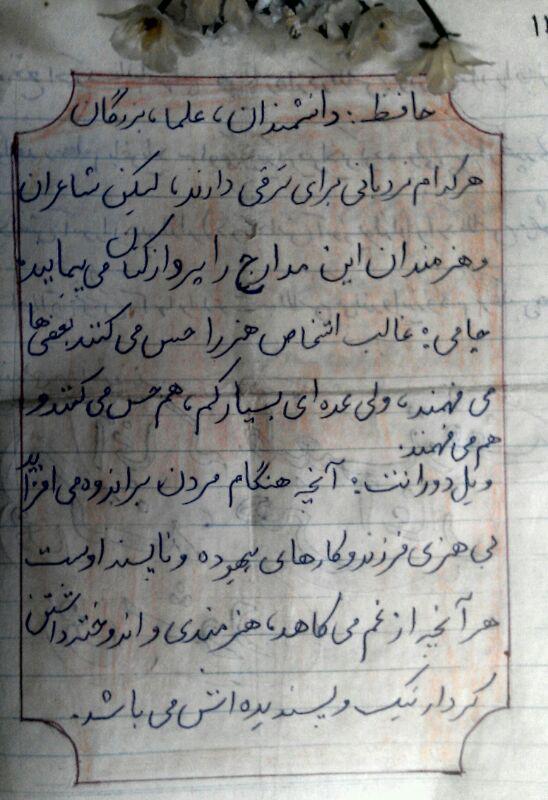 حافظ: دانشمندان، علما، بزرگان
هرکدام نردبانی برای ترقی دارند، لیکن شاعران
و هنرمندان این مدارج را پرواز کنان می پیمایند.
جامی: غالب اشخاص هنر را حس می کنند بعضی ها
می فهمند، ولی عده ای بسیار کم، هم حس می کنند و
هم می فهمند.
ویل دورانت: آنچه هنگام مردن بر اندوه می افزاید
بی هنری فرزند و کارهای بیهوده و ناپسند اوست
هر آنچه از غم می کاهد، هنرمندی و اندوخته داشتن
کردار نیک و پسندیده اش می باشد.